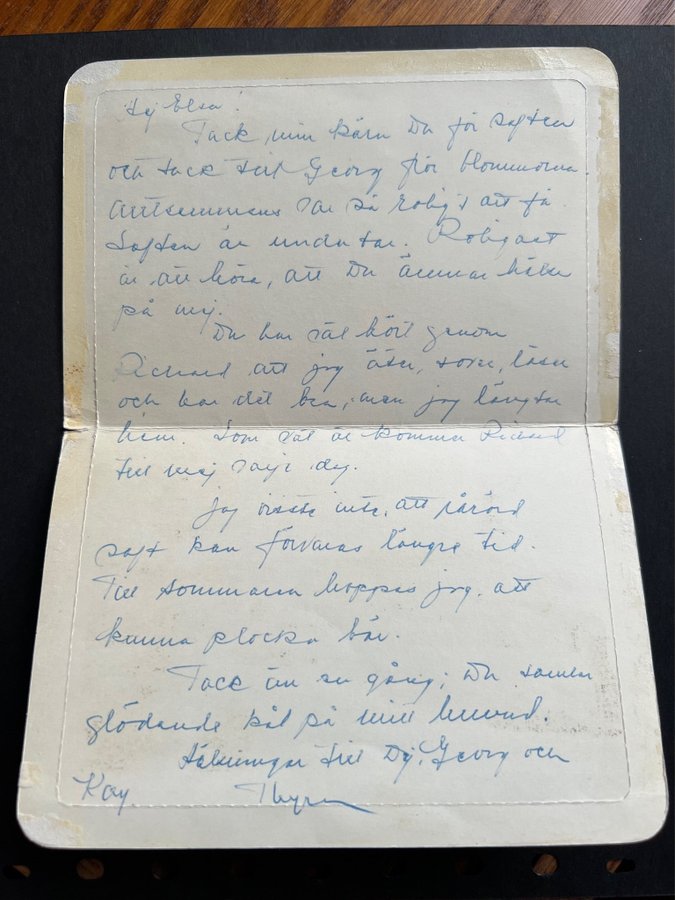 Hej Elsa!
Tack min kära Du för saften
och tack till Georg för blommorna.
Alltsammans var så roligt att få.
Saften är underbar. Roligast
är att höra, att Du ämnar hälsa
på mig.
Du har väl hört genom
Richard att jag äter, sover, läser
och har det bra, men jag längtar
hem. Som väl är kommer Richard
till mej varje dag.
Jag visste inte, att rårörd
saft kan förvaras längre tid.
Till sommaren hoppas jag, att
kunna plocka bär.
Tack än en gång; Du samlar
glödande kol på mitt huvud.
Hälsningar till Dej, Georg och
Kay. Thyra